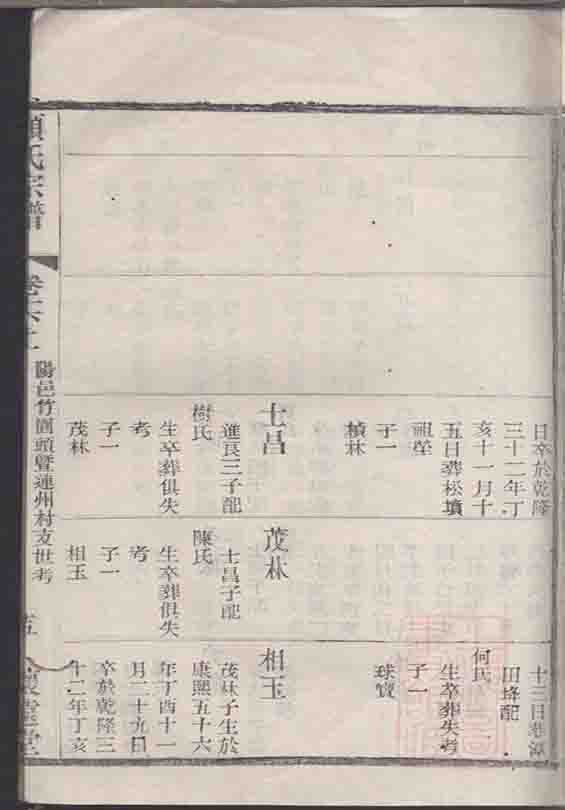 日卒於乾隆
三十二年丁
亥十一月十
五日葬松墳
祖塋
子一
楨林
士昌
進良三子配
樹氏
生卒葬俱失
考
子一
茂林
茂林
士昌子配
陳氏
生卒葬俱失
考
子一
相玉
十三日葬
配
何氏
生卒葬失考
子一
球寶
相玉
茂林子生於
康熙五十六
年丁酉十一
月二十九日
卒於乾隆三
十二年丁亥
氏宗譜
陽邑竹園頭暨連州村支世考